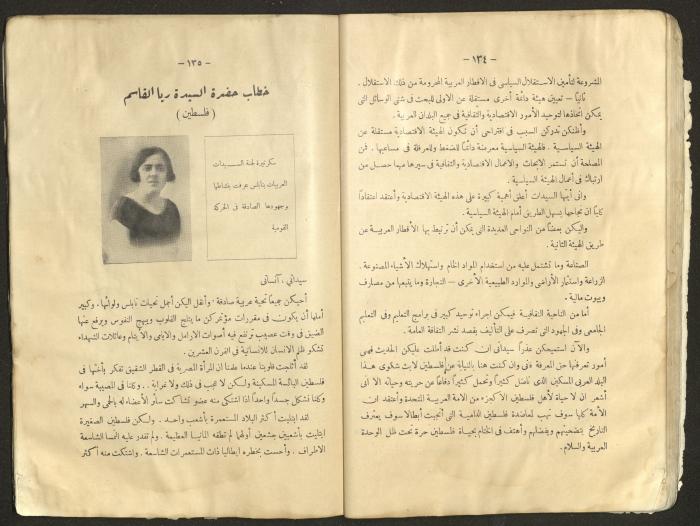 — ١٣٤ —
المشروعة لتأمين الاستقلال السياسى فى الاقطار العربية المحرومة من ذلك الاستقلال .
ثانياً — تعيين هيئة دائمة أخرى مستقلة عن الاولى للبحث فى شتى الوسائل التى
يمكن اتخاذها لتوحيد الأمور الاقتصادية والثقافية فى جميع البلدان العربية .
وأظنكن تدركن السبب فى اقتراحى أن تكون الهيئة الاقتصادية مستقلة عن
الهيئة السياسية . فالهيئة السياسية معرضة دائماً للضغط وللعرقلة فى مساعيها . فمن
المصلحة أن تستمر الابحاث والاعمال الاقتصادية والثقافية فى سيرها مهما حصل من
ارتباك فى أعمال الهيئة السياسية .
وانى أيتها السيدات أعلق أهمية كبيرة على هذه الهيئة الاقتصادية وأعتقد اعتقاداً
ثابتاً ان نجاحها يسهل الطريق أمام الهيئة السياسية .
واليكن بعضاً من النواحى العديدة التى يمكن أن ترتبط بها الأقطار العربية عن
طريق الهيئة الثانية .
الصناعة وما تشتمل عليه من استخدام المواد الخام واستهلاك الأشياء المصنوعة .
الزراعة واستثمار الأراضى والموارد الطبيعية الأخرى — التجارة وما يتبعها من مصارف
وبيوت مالية .
أما من الناحية الثقافية فيمكن اجراء توحيد كبير فى برامج التعليم وفى التعليم
الجامعى وفى الجهود التى تصرف على التأليف بقصد نشر الثقافة العامة .
والآن أستميحكن عذراً سيداتى ان كنت قد أطلت عليكن الحديث فهى
أمور تعرفنها حق المعرفة فانى وان كنت هنا بالنيابة عن فلسطين لابث شكوى هذا
البلد العربى المسكين الذى ناضل كثيراً وتحمل كثيراً دفاعاً عن حريته وحياته الا انى
أشعر ان لا حياة لأهل فلسطين الا كجزء من الامة العربية المتحدة وأعتقد ان
الأمة كلها سوف تهب لمعاضدة فلسطين الدامية التى أنجبت أبطالا سوف يعترف
التاريخ بتضحيتهم وبفضلهم وأهتف فى الختام بحياة فلسطين حرة تحت ظل الوحدة
العربية والسلام .
— ١٣٥ —
خطاب حضرة السيدة ريا القاسم
( فلسطين )
سكرتيرة لجنة السيدات
العربيات بنابلس عرفت بنشاطها
وجهودها الصادقة فى الحركة
القومية
سيداتى ، آنساتى
أحييكن جميعاً تحية عربية صادقة ، وأنقل اليكن أجمل تحيات نابلس ولوائها . وكبير
أملها أن يكون فى مقررات مؤتمركن ما يثلج القلوب ويبهج النفوس ويرفع عنها
الضيق فى وقت عصيب ترتفع فيه أصوات الارامل والايامى والايتام وعائلات الشهداء
تشكو ظلم الانسان للانسانية فى القرن العشرين .
لقد أثلجت قلوبنا عندما علمنا ان المرأة المصرية فى القطر الشقيق تفكر بأختها فى
فلسطين اليائسة المسكينة ولكن لا عجب فى ذلك ولا غرابة . . وكلنا فى المصيبة سواء
وكلنا نشكل جسداً واحداً اذا اشتكى منه عضو تشاكت سائر الأعضاء له بالحمى والسهر
لقد ابتليت أكثر البلاد المستعمرة بأشعب واحد . ولكن فلسطين الصغيرة
ابتليت بأشعبين جشعين أولهما لم تطقه المانيا العظيمة . ولم تقدر عليه النمسا الشاسعة
الاطراف . وأحست بخطره ايطاليا ذات المستعمرات الشاسعة . واشتكت منه أكثر